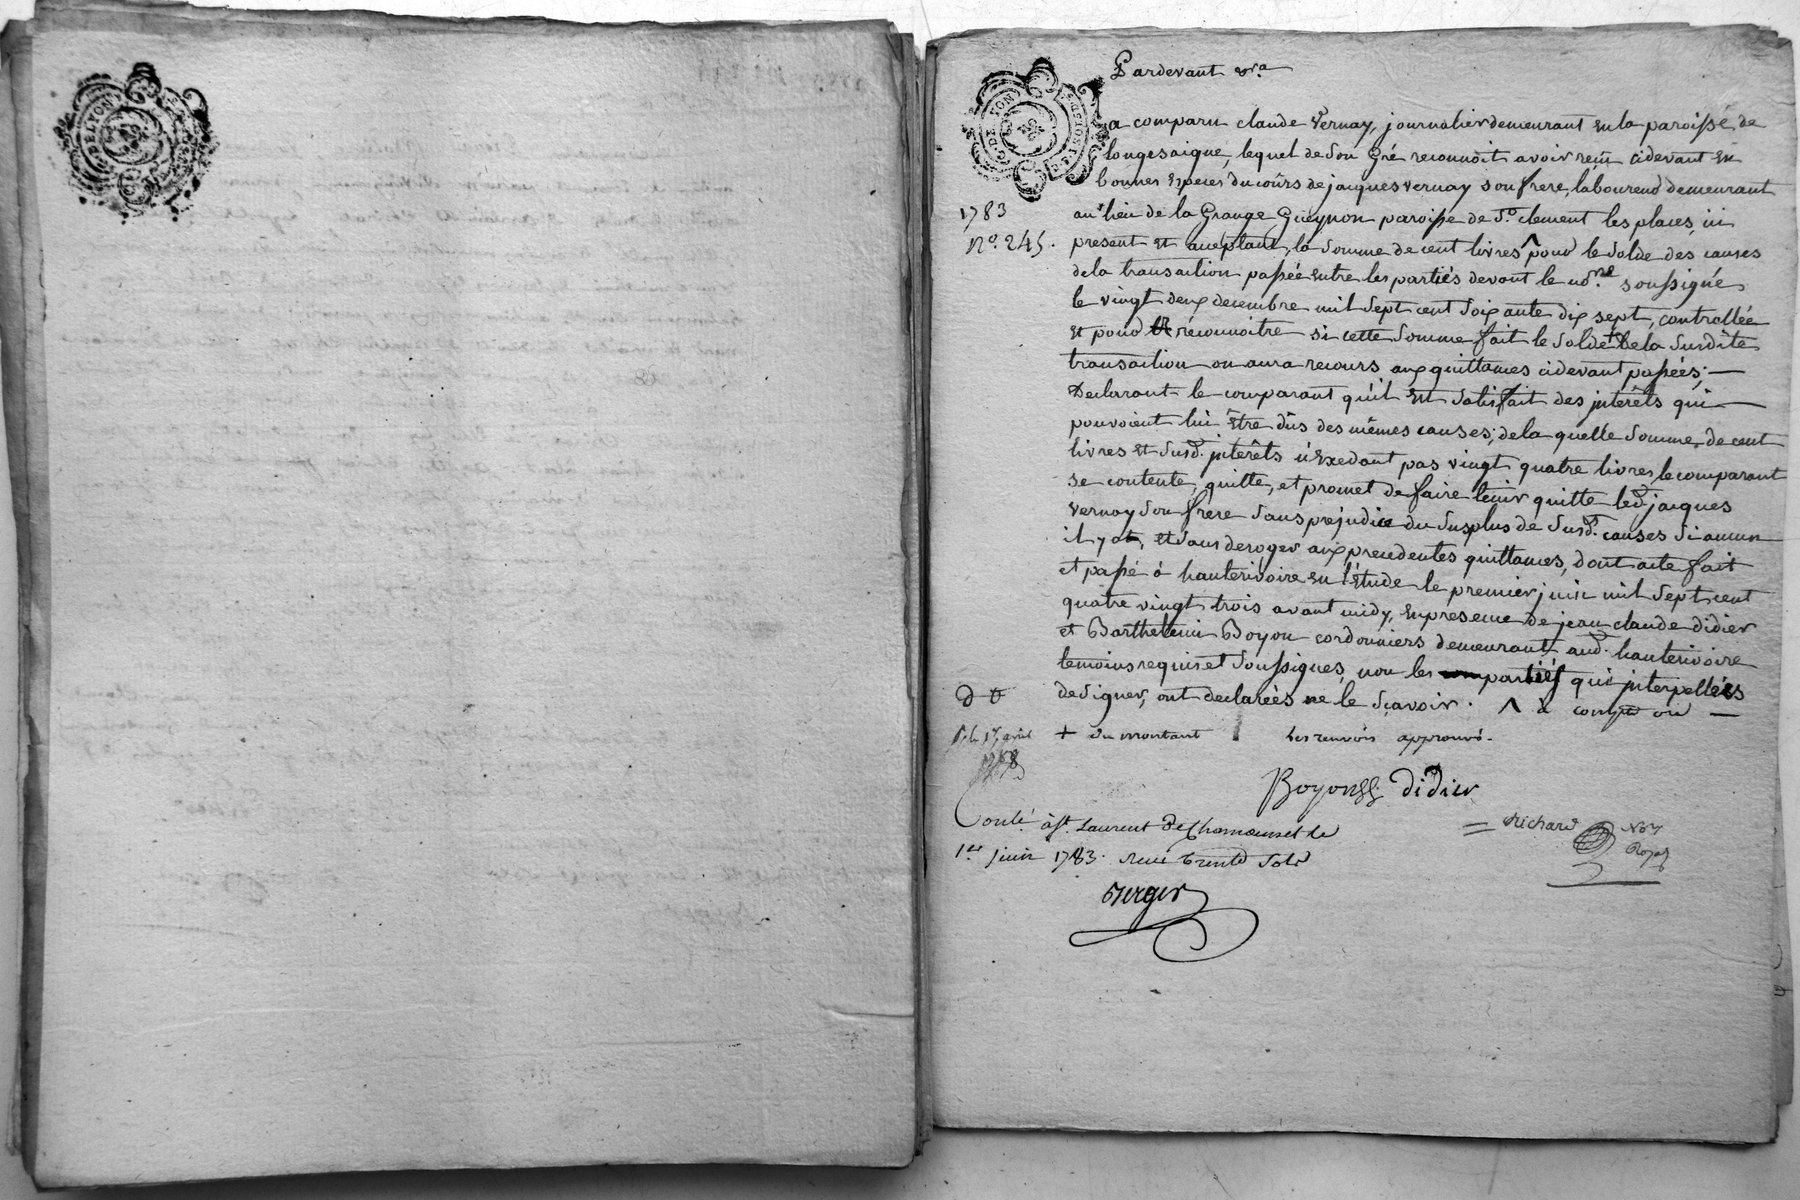 G. DE LYON
G. DE LYON
Pardevant &ra
a comparu claude Vernay, journalier demeurant en la paroisse de
longesaigne, lequel de son Gré reconnoit avoir reçu cidevant en
bonnes especes du cours de jacques vernay son frere, laboureur demeurant
1783
au lieu de la Grange Gueynon paroisse de St. clement les places, ici
No. 245.
present et acceptant, la somme de cent livres ^ pour le solde des causes
de la transaction passée entre les partiés devant le nore. soussigné
le vingt deux decembre mil sept cent soixante dix sept, controllée
et pour reconnoitre si cette somme fait le solde + de la susdite
transaction on aura recours aux quittances cidevant passées; —
Declarant le comparant qu'il est satisfait des jnterêts qui —
pouvoient lui être dûs des mêmes causes; de la quelle somme de cent
livres et susd. jnterêts n'éxedant pas vingt quatre livres le comparant
se contente, quitte, et promet de faire tenir quitte led. jacques
vernay son frere sans prejudice du surplus de susd. causes si aucun
il y at, et sans deroger aux precedentes quittances, dont acte fait
et passé à hauterivoire en l'étude le premier juin mil sept cent
quatre vingt trois avant midy, en presence de jean claude didier
et Barthelemi Boyon cordonniers demeurant aud. hauterivoire
temoins requis et soussignes, non les partiés qui jnterpellées
de signer, ont declareés ne le sçavoir. ^ à compte ou —
+ du montant les renvois approuvés.
Boyon didier
Conlé. à st. Laurent de Chamousset le
Richard Nore
Royal
1er juin 1783. reçu trente sols
Berger